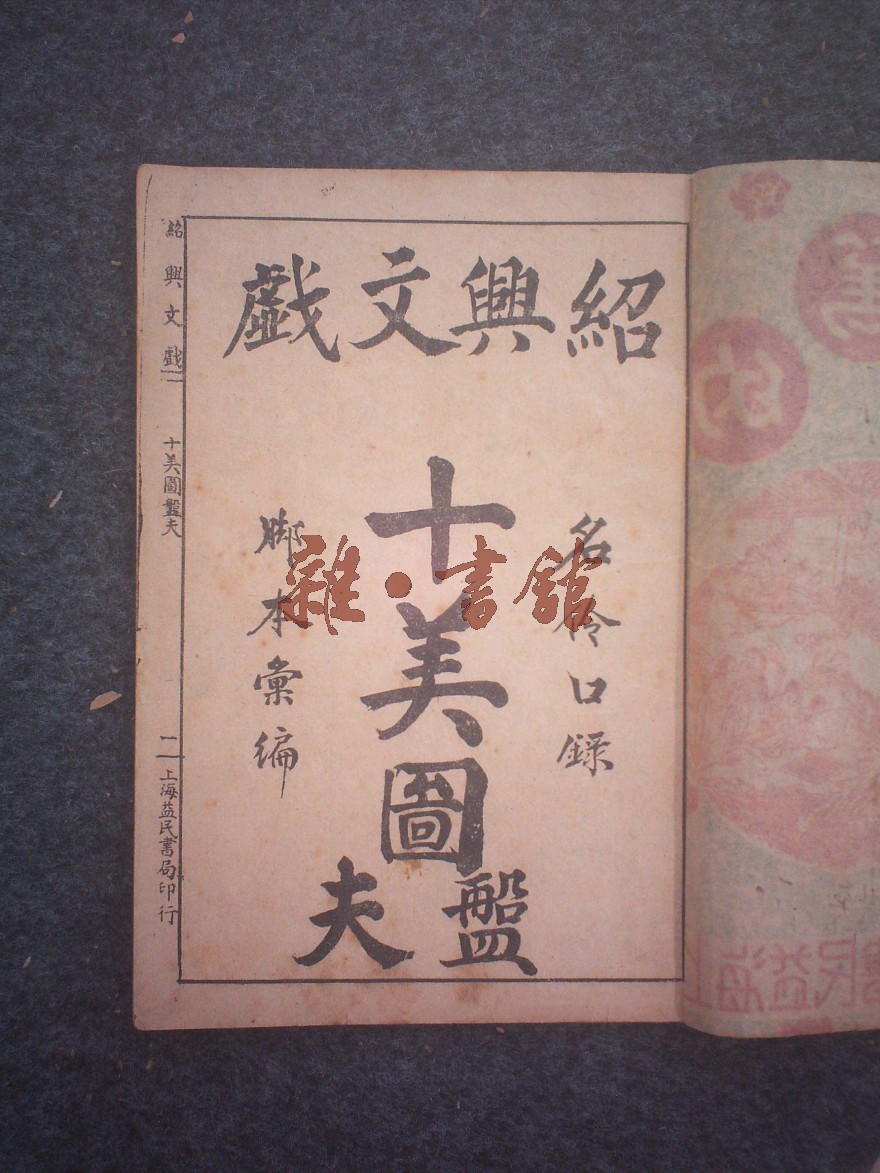 紹興文戲
名伶口錄
十美圖
盤夫
脚本彙編
紹興文戲
十美圖盤夫
二
上海益民書局印行
雜·書館
的篤
上海益民書